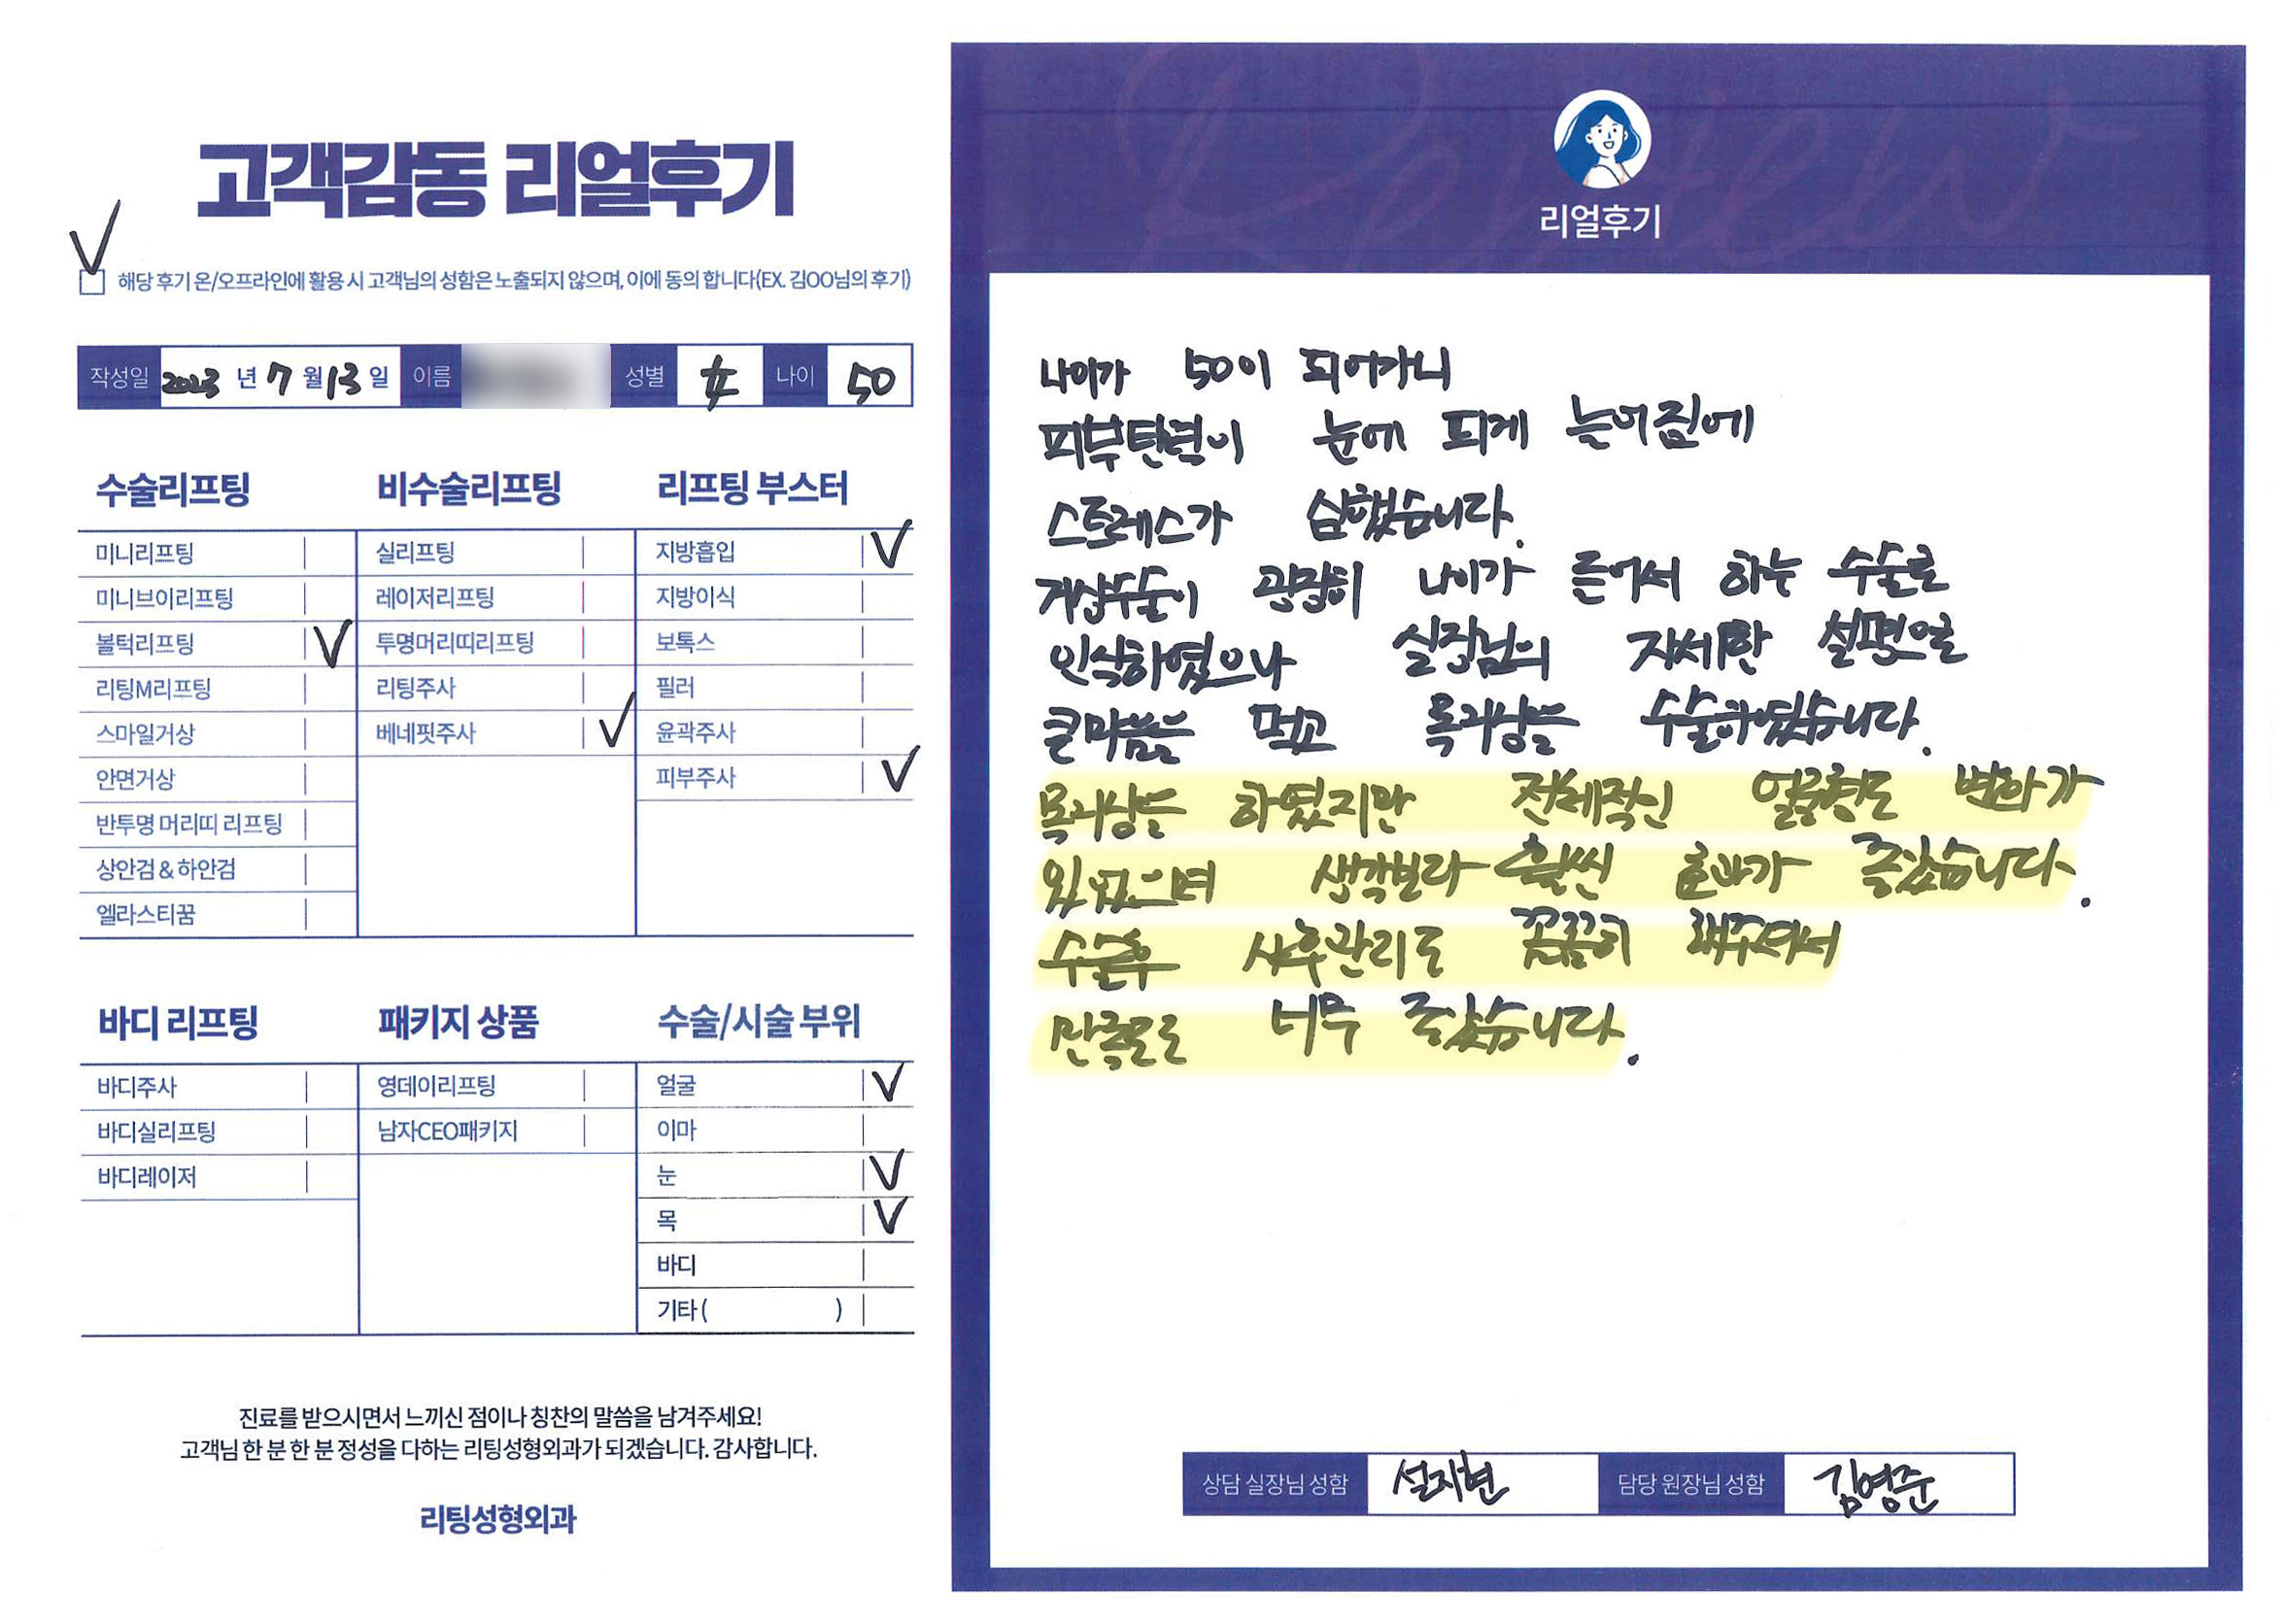 고객감동 리얼후기
해당 후기 온/오프라인에 활용 시 고객님의 성함은 노출되지 않으며, 이에 동의 합니다(EX. 김OO님의 후기)
작성일 2023 년 7 월 13 일 이름 성별 女 나이 50
수술리프팅
미니리프팅
미니브이리프팅
볼턱리프팅
리팅M리프팅
스마일거상
안면거상
반투명 머리띠 리프팅
상안검 & 하안검
엘라스티꿈
비수술리프팅
실리프팅
레이저리프팅
투명머리띠리프팅
리팅주사
베네핏주사
리프팅 부스터
지방흡입
지방이식
보톡스
필러
윤곽주사
피부주사
바디 리프팅
바디주사
바디실리프팅
바디레이저
패키지 상품
영데이리프팅
남자CEO패키지
수술/시술 부위
얼굴
이마
눈
목
바디
기타 ( )
진료를 받으시면서 느끼신 점이나 칭찬의 말씀을 남겨주세요!
고객님 한 분 한 분 정성을 다하는 리팅성형외과가 되겠습니다. 감사합니다.
리팅성형외과
Review
리얼후기
나이가 50이 되어가니
피부탄력이 눈에 띄게 늘어짐에
스트레스가 심했습니다.
거상수술이 굉장히 나이가 들어서 하는 수술로
인식하였으나 실장님의 자세한 설명으로
큰마음을 먹고 목거상을 수술하였습니다.
목거상을 하였지만 전체적인 얼굴형도 변화가
있었으며 생각보다 훨씬 효과가 좋았습니다.
수술후 사후관리도 꼼꼼히 해주셔서
만족도도 너무 좋았습니다.
상담 실장님 성함 설지현 담당 원장님 성함 김영준